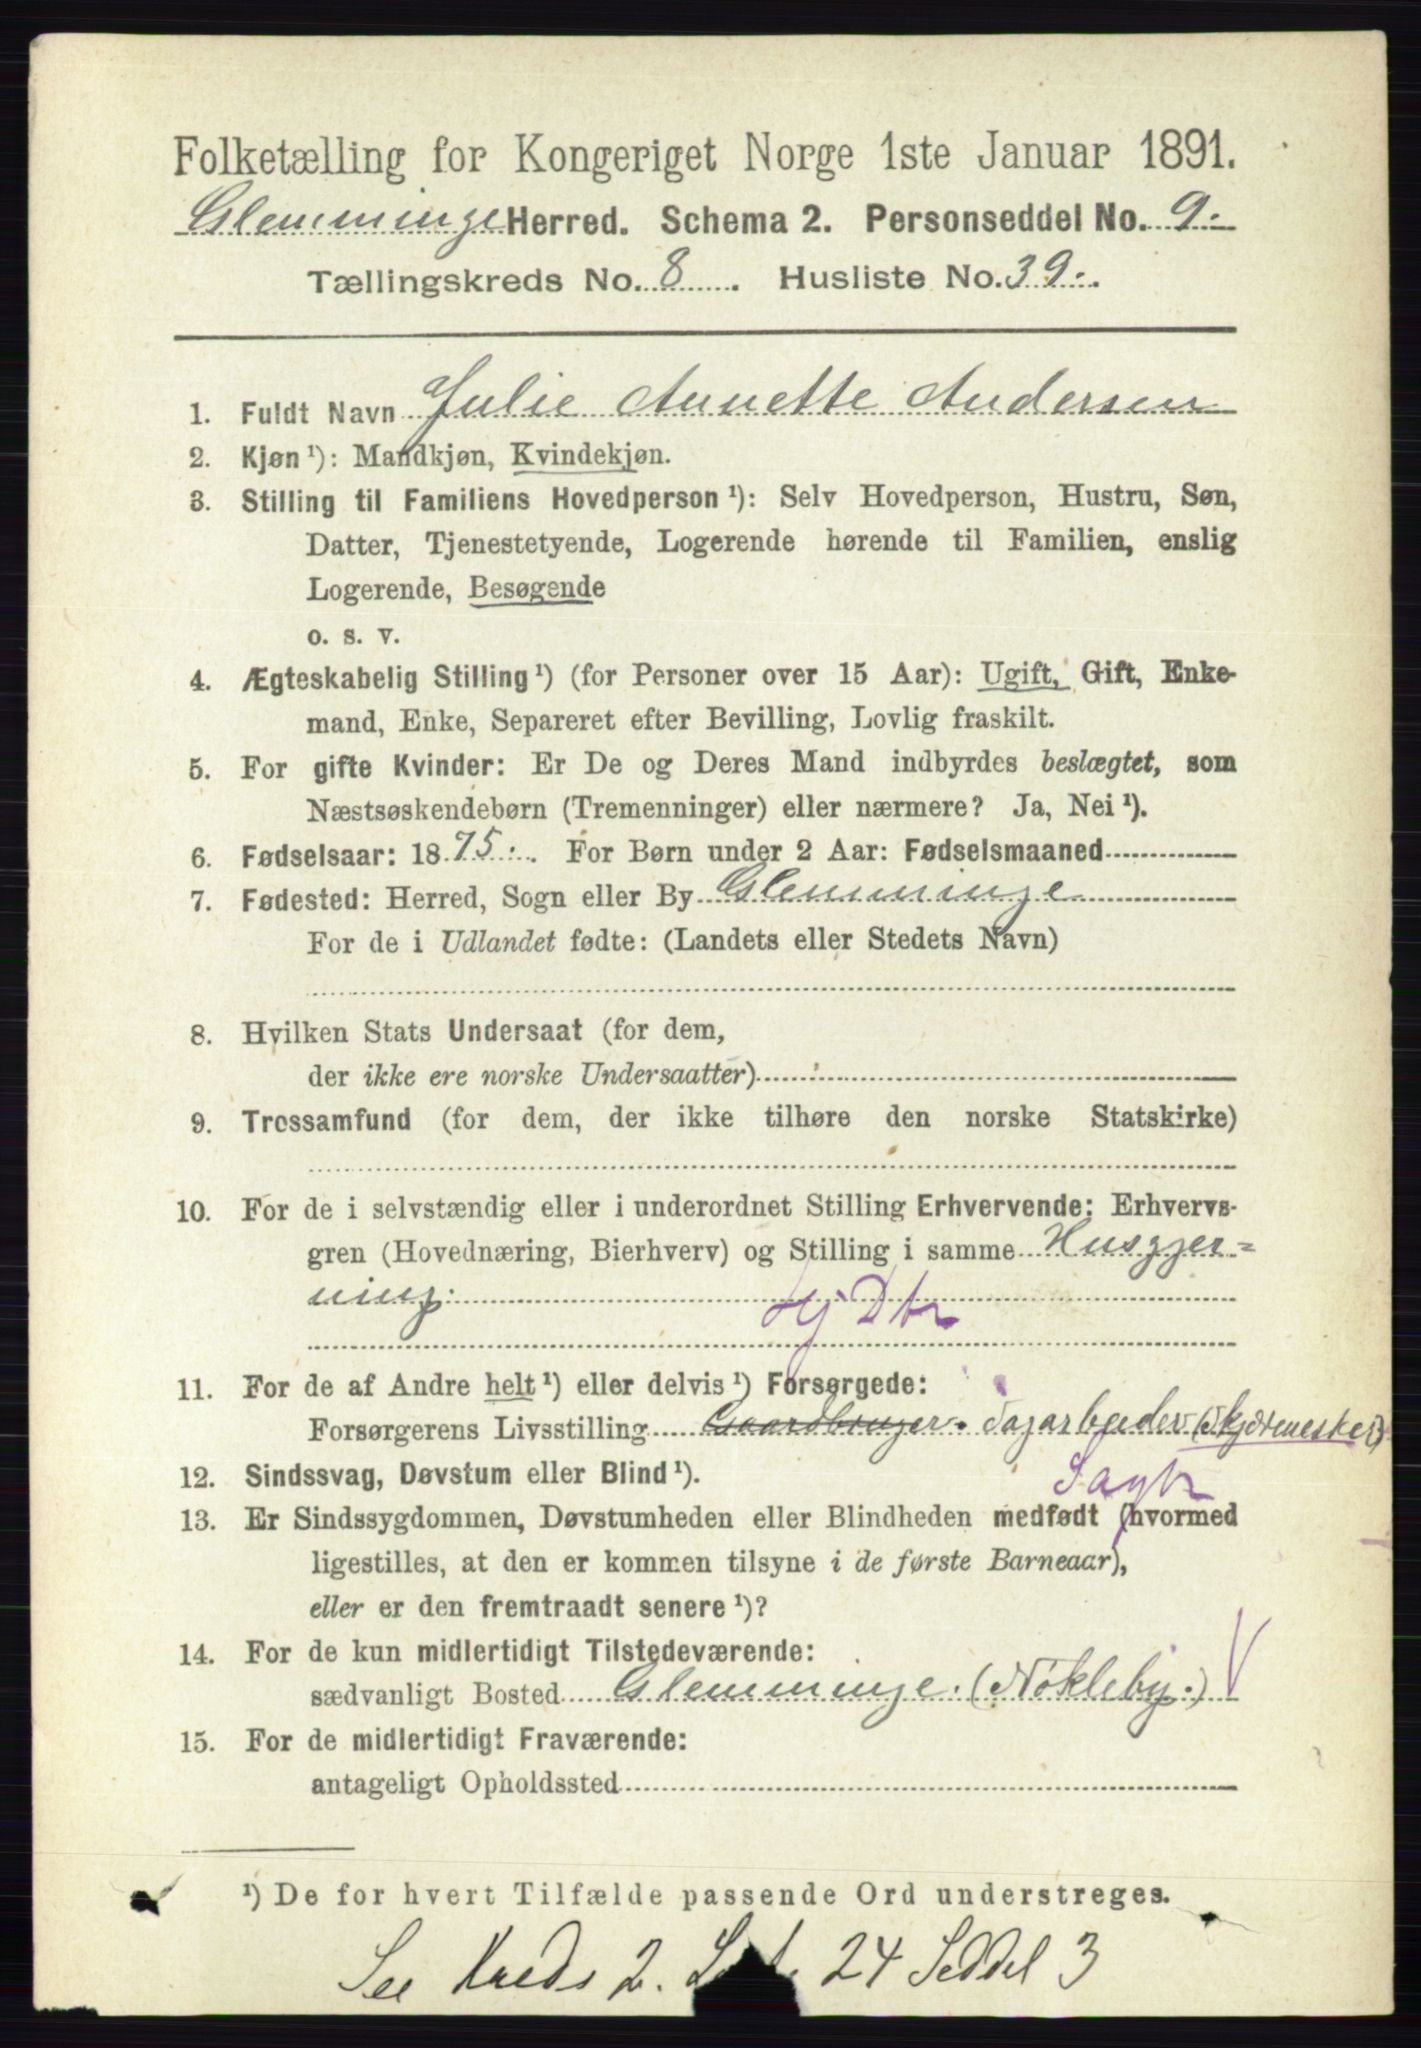 Folketælling for Kongeriget Norge 1ste Januar 1891.
Glemminge Herred. Schema 2. Personseddel No. 9.
Tællingskreds No. 8. Husliste No. 39.
1. Fuldt Navn Julie Annette Andersen
2. Kjøn ¹): Mandkjøn, Kvindekjøn.
3. Stilling til Familiens Hovedperson ¹): Selv Hovedperson, Hustru, Søn,
Datter, Tjenestetyende, Logerende hørende til Familien, enslig
Logerende, Besøgende
o. s. v.
4. Ægteskabelig Stilling ¹) (for Personer over 15 Aar): Ugift, Gift, Enke-
mand, Enke, Separeret efter Bevilling, Lovlig fraskilt.
5. For gifte Kvinder: Er De og Deres Mand indbyrdes beslægtet, som
Næstsøskendebørn (Tremenninger) eller nærmere? Ja, Nei ¹).
6. Fødselsaar: 1875. For Børn under 2 Aar: Fødselsmaaned
7. Fødested: Herred, Sogn eller By Glemminge
For de i Udlandet fødte: (Landets eller Stedets Navn)
8. Hvilken Stats Undersaat (for dem,
der ikke ere norske Undersaatter)
9. Trossamfund (for dem, der ikke tilhøre den norske Statskirke)
10. For de i selvstændig eller i underordnet Stilling Erhvervende: Erhvervs-
gren (Hovednæring, Bierhverv) og Stilling i samme Husgjer=
ning.
Hj Dtr
11. For de af Andre helt ¹) eller delvis ¹) Forsørgede:
Forsørgerens Livsstilling Gaardbruger. Dagarbeider (Skjærmester)
12. Sindssvag, Døvstum eller Blind ¹).
13. Er Sindssygdommen, Døvstumheden eller Blindheden medfødt (hvormed
ligestilles, at den er kommen tilsyne i de første Barneaar),
eller er den fremtraadt senere ¹)?
14. For de kun midlertidigt Tilstedeværende:
sædvanligt Bosted Glemminge. (Nökleby.) V
15. For de midlertidigt Fraværende:
antageligt Opholdssted
¹) De for hvert Tilfælde passende Ord understreges.
See Kreds 2. 24 Seddel 3